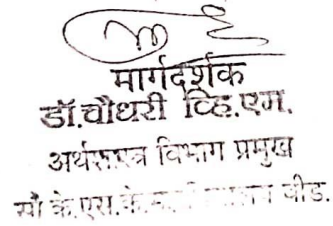 मार्गदर्शक
डॉ.चौधरी व्हि.एम.
अर्थशास्त्र विभाग प्रमुख
सौ के.एस.के. बीड.